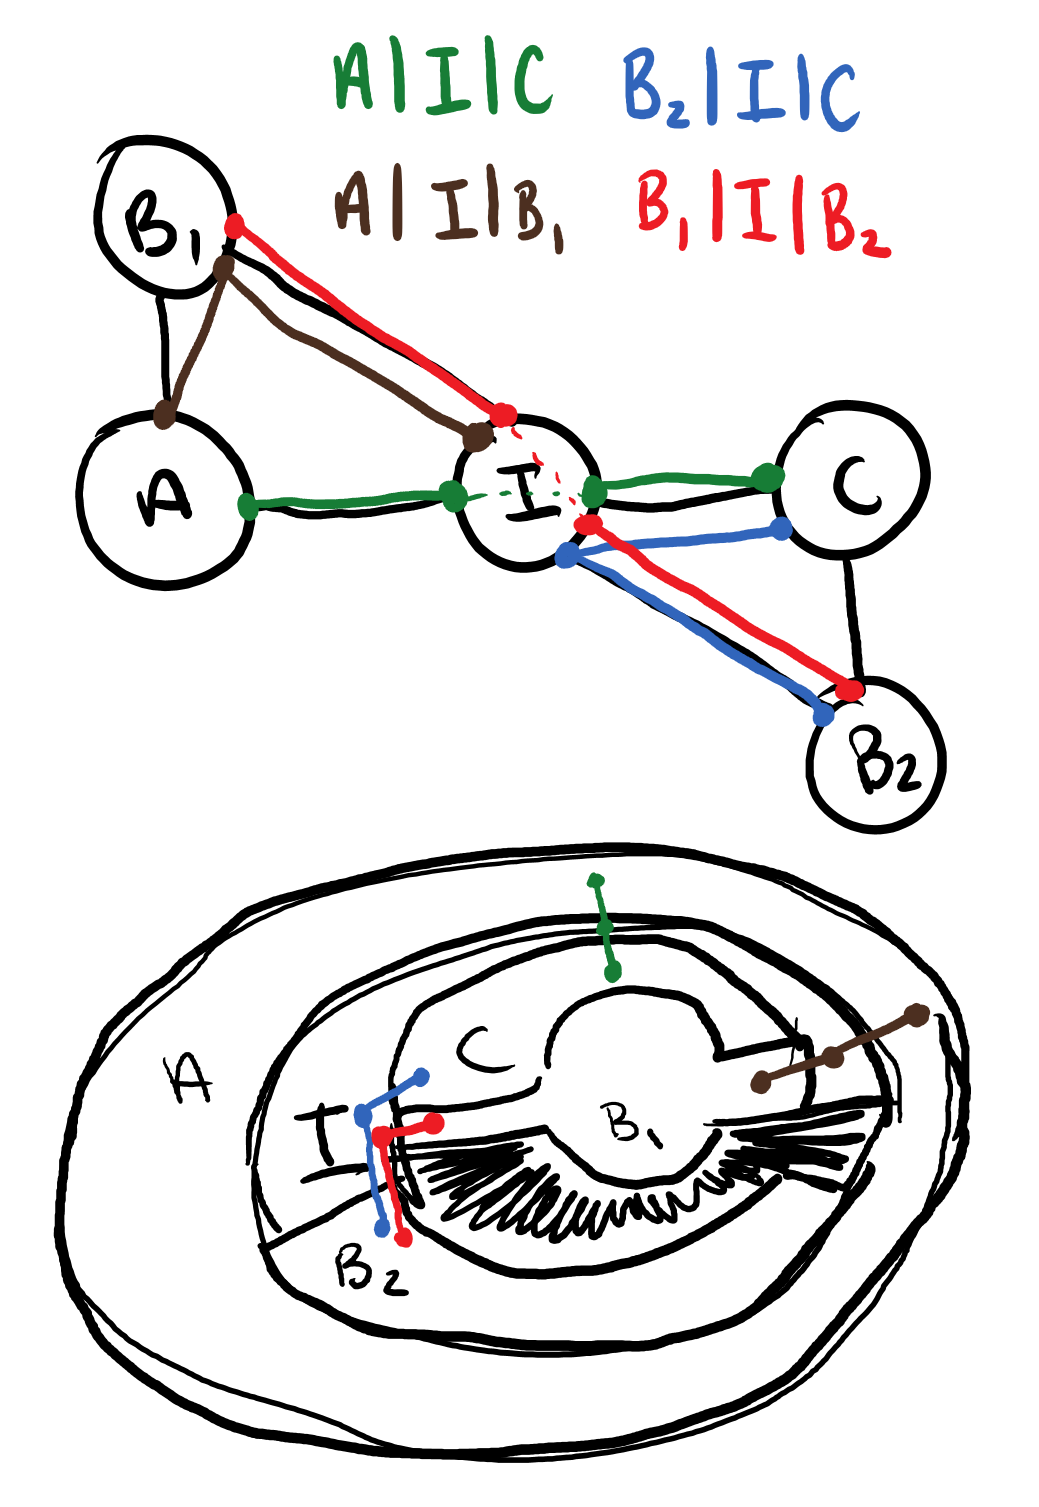 A|I|C B₂|I|C
A|I|B₁ B₁|I|B₂
B₁
A I C
B₂
C
A
I B₁
B₂